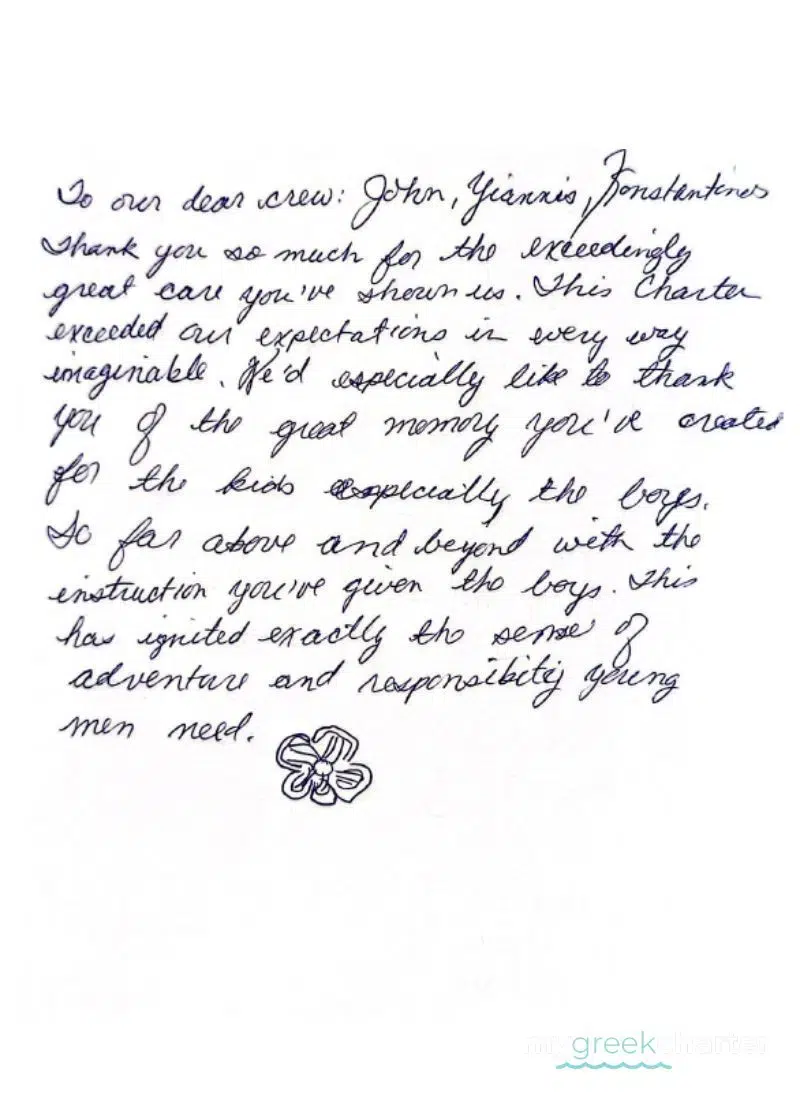 To our dear crew: John, Yiannis, Konstantinos
Thank you so much for the exceedingly
great care you've shown us. This Charter
exceeded our expectations in every way
imaginable. We'd especially like to thank
you of the great memory you've created
for the kids especially the boys.
So far above and beyond with the
instruction you've given the boys. This
has ignited exactly the sense of
adventure and responsibity young
men need.
my greek charter